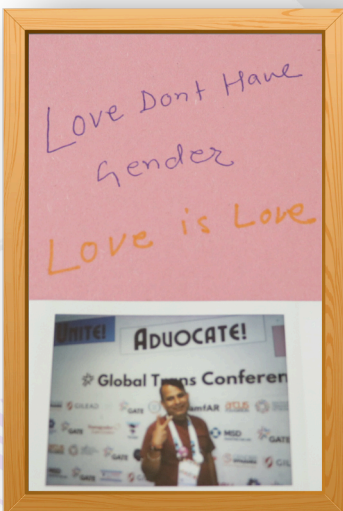 Love Dont Have
Gender
Love is Love
UNITE!
ADVOCATE!
Global Trans Conferen
GILEAD
GATE
amfAR
GATE
MSD
GATE
GATE